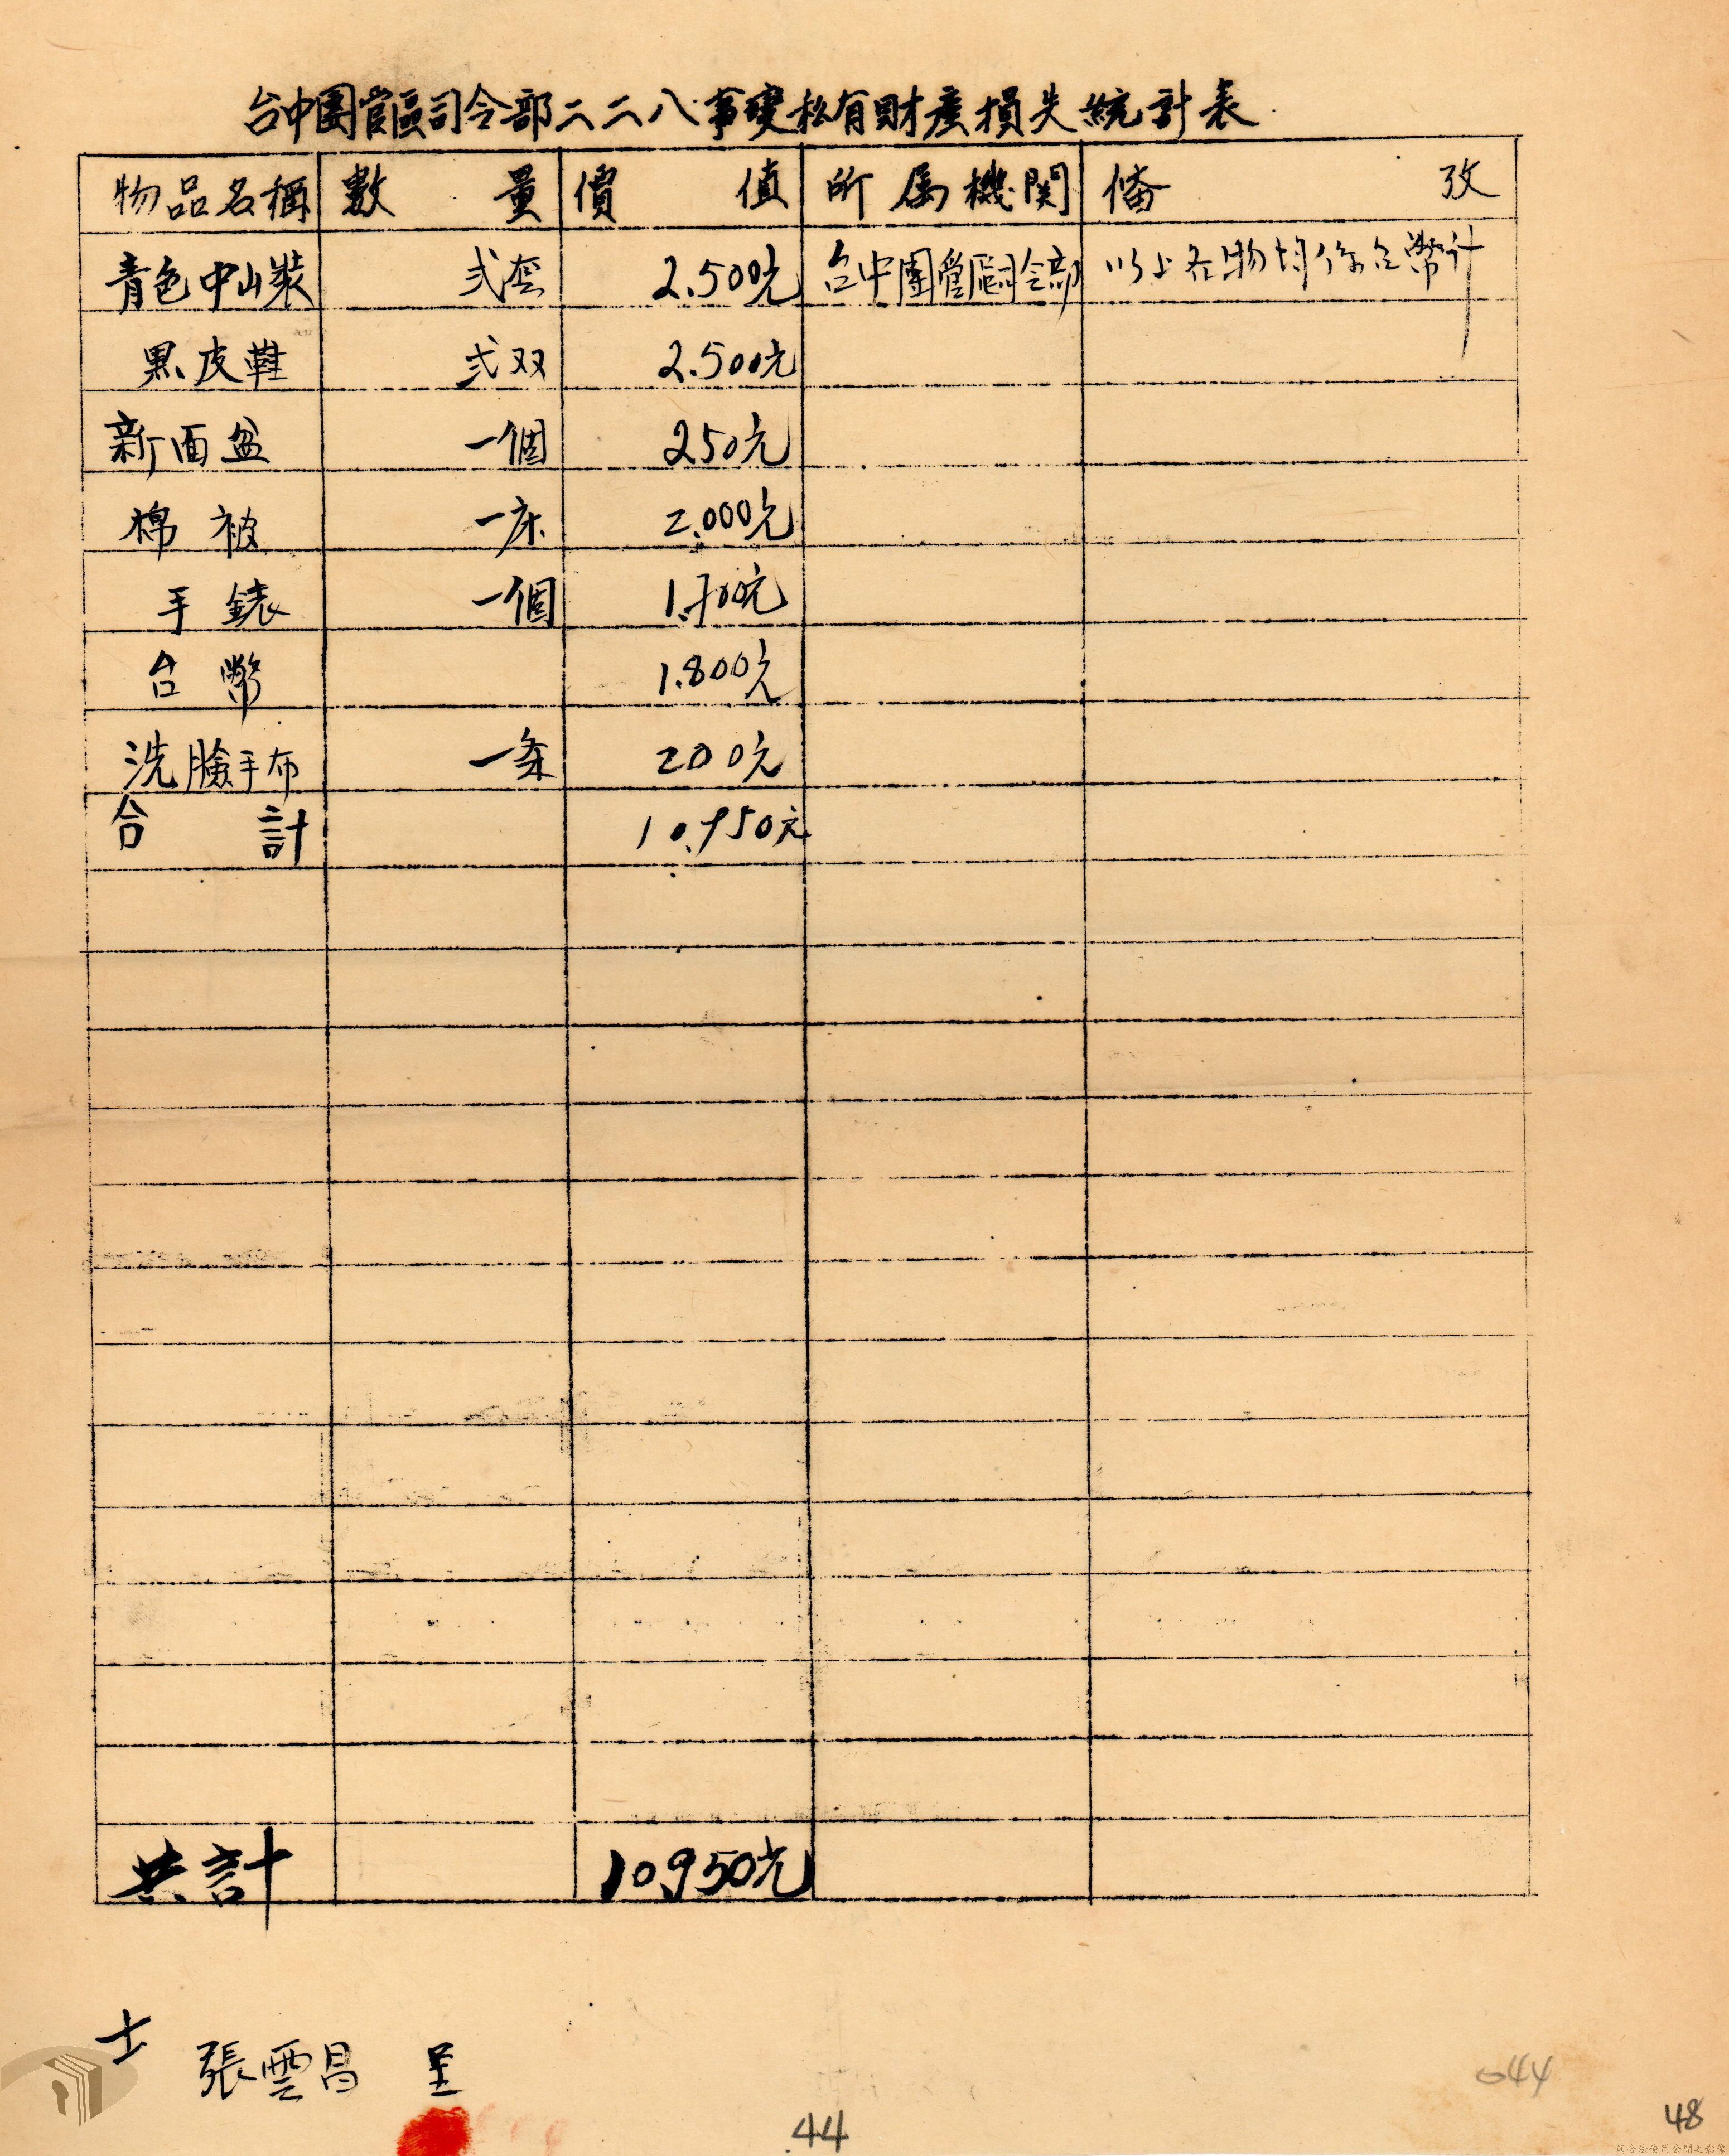 台中團管區司令部二二八事變私有財產損失統計表
物品名稱 數量 價值 所属機関 備攷
青色中山裝 弍套 2.500元 台中團管區司令部 以上各物均係台幣計
黑皮鞋 弍双 2.500元
新面盆 一個 250元
棉被 一床 2.000元
手錶 一個 1.700元
台幣 1.800元
洗臉手布 一条 200元
合計 10.950元
共計 10.950元
士 張雲昌 呈
044
44
48
請合法使用公開之影像